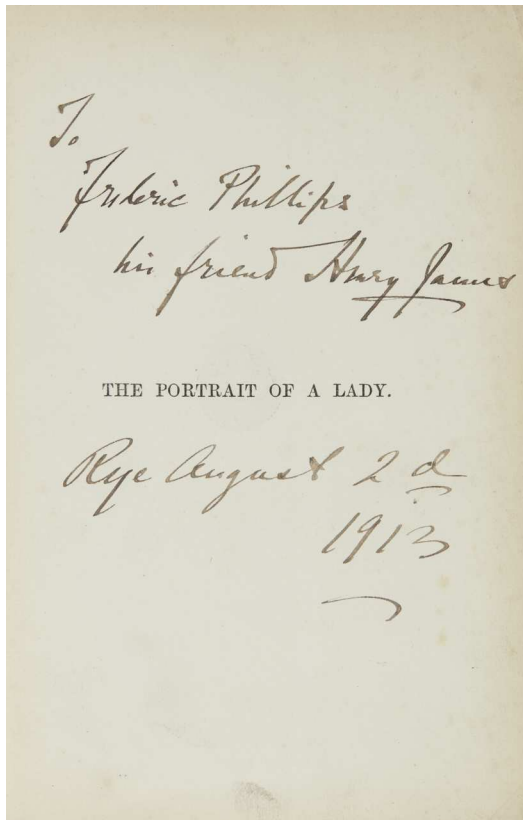 To
Frederic Phillips
his friend Henry James
THE PORTRAIT OF A LADY.
Rye August 2d
1913